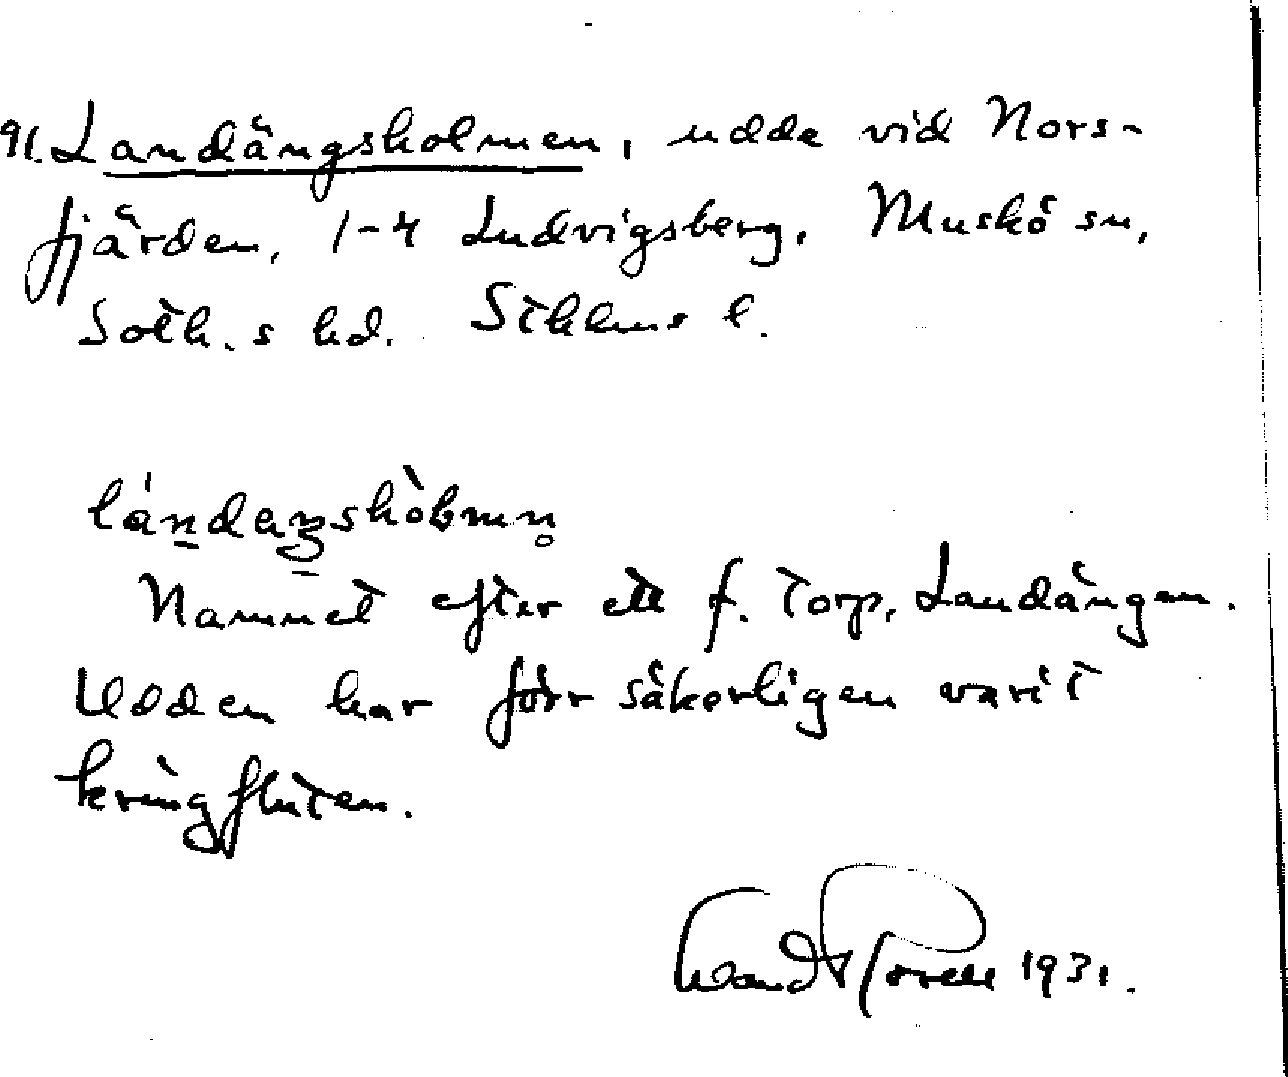 91. Landängsholmen, udde vid Nors-
fjärden, 1-4 Ludvigsberg, Muskö sn,
Soth. s hd. Sthlms l.
Namnet efter ett f. torp, Landängen.
Udden har förr säkerligen varit
kringfluten.
1931.